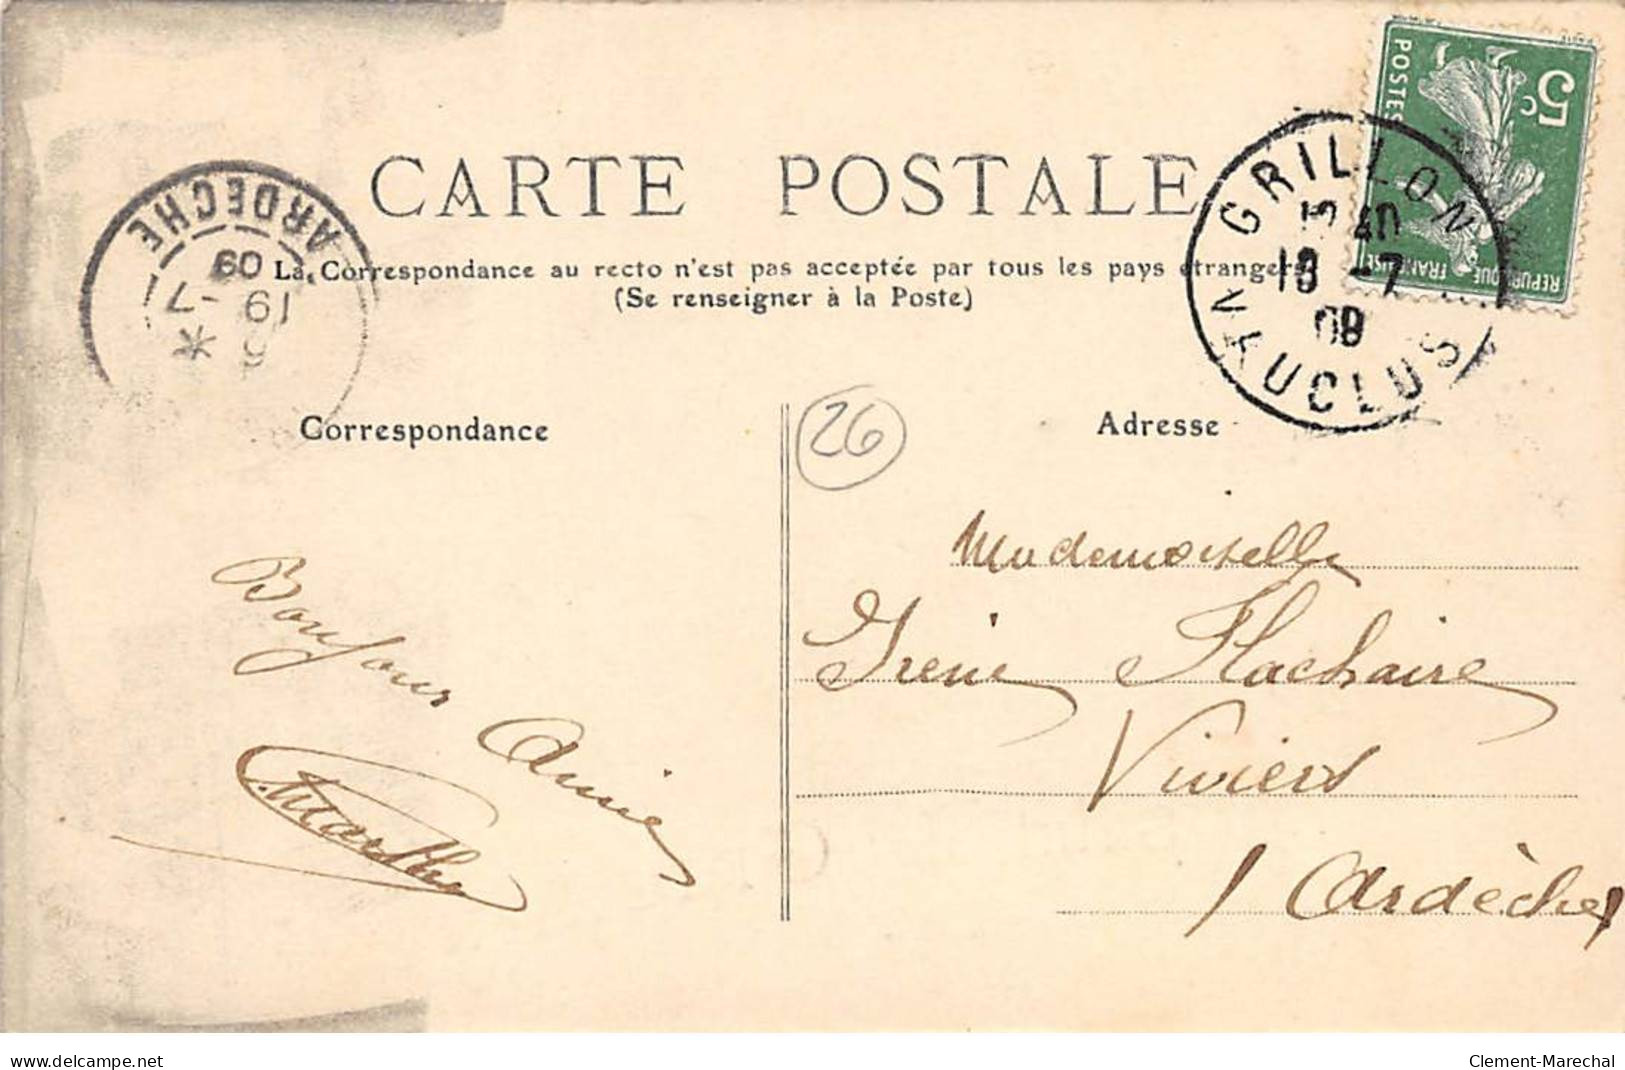 CARTE POSTALE
La Correspondance au recto n'est pas acceptée par tous les pays étrangers
(Se renseigner à la Poste)
ARDECHE
19 -7
09
GRILLON
-7
09
VAUCLUS
5c
POSTES
REPUBLIQUE FRANÇAISE
Correspondance
26
Adresse
Bonjour Aimée
Marthe
Mademoiselle
Irène Flachaire
Viviers
(Ardèche)
www.delcampe.net
Clement-Marechal